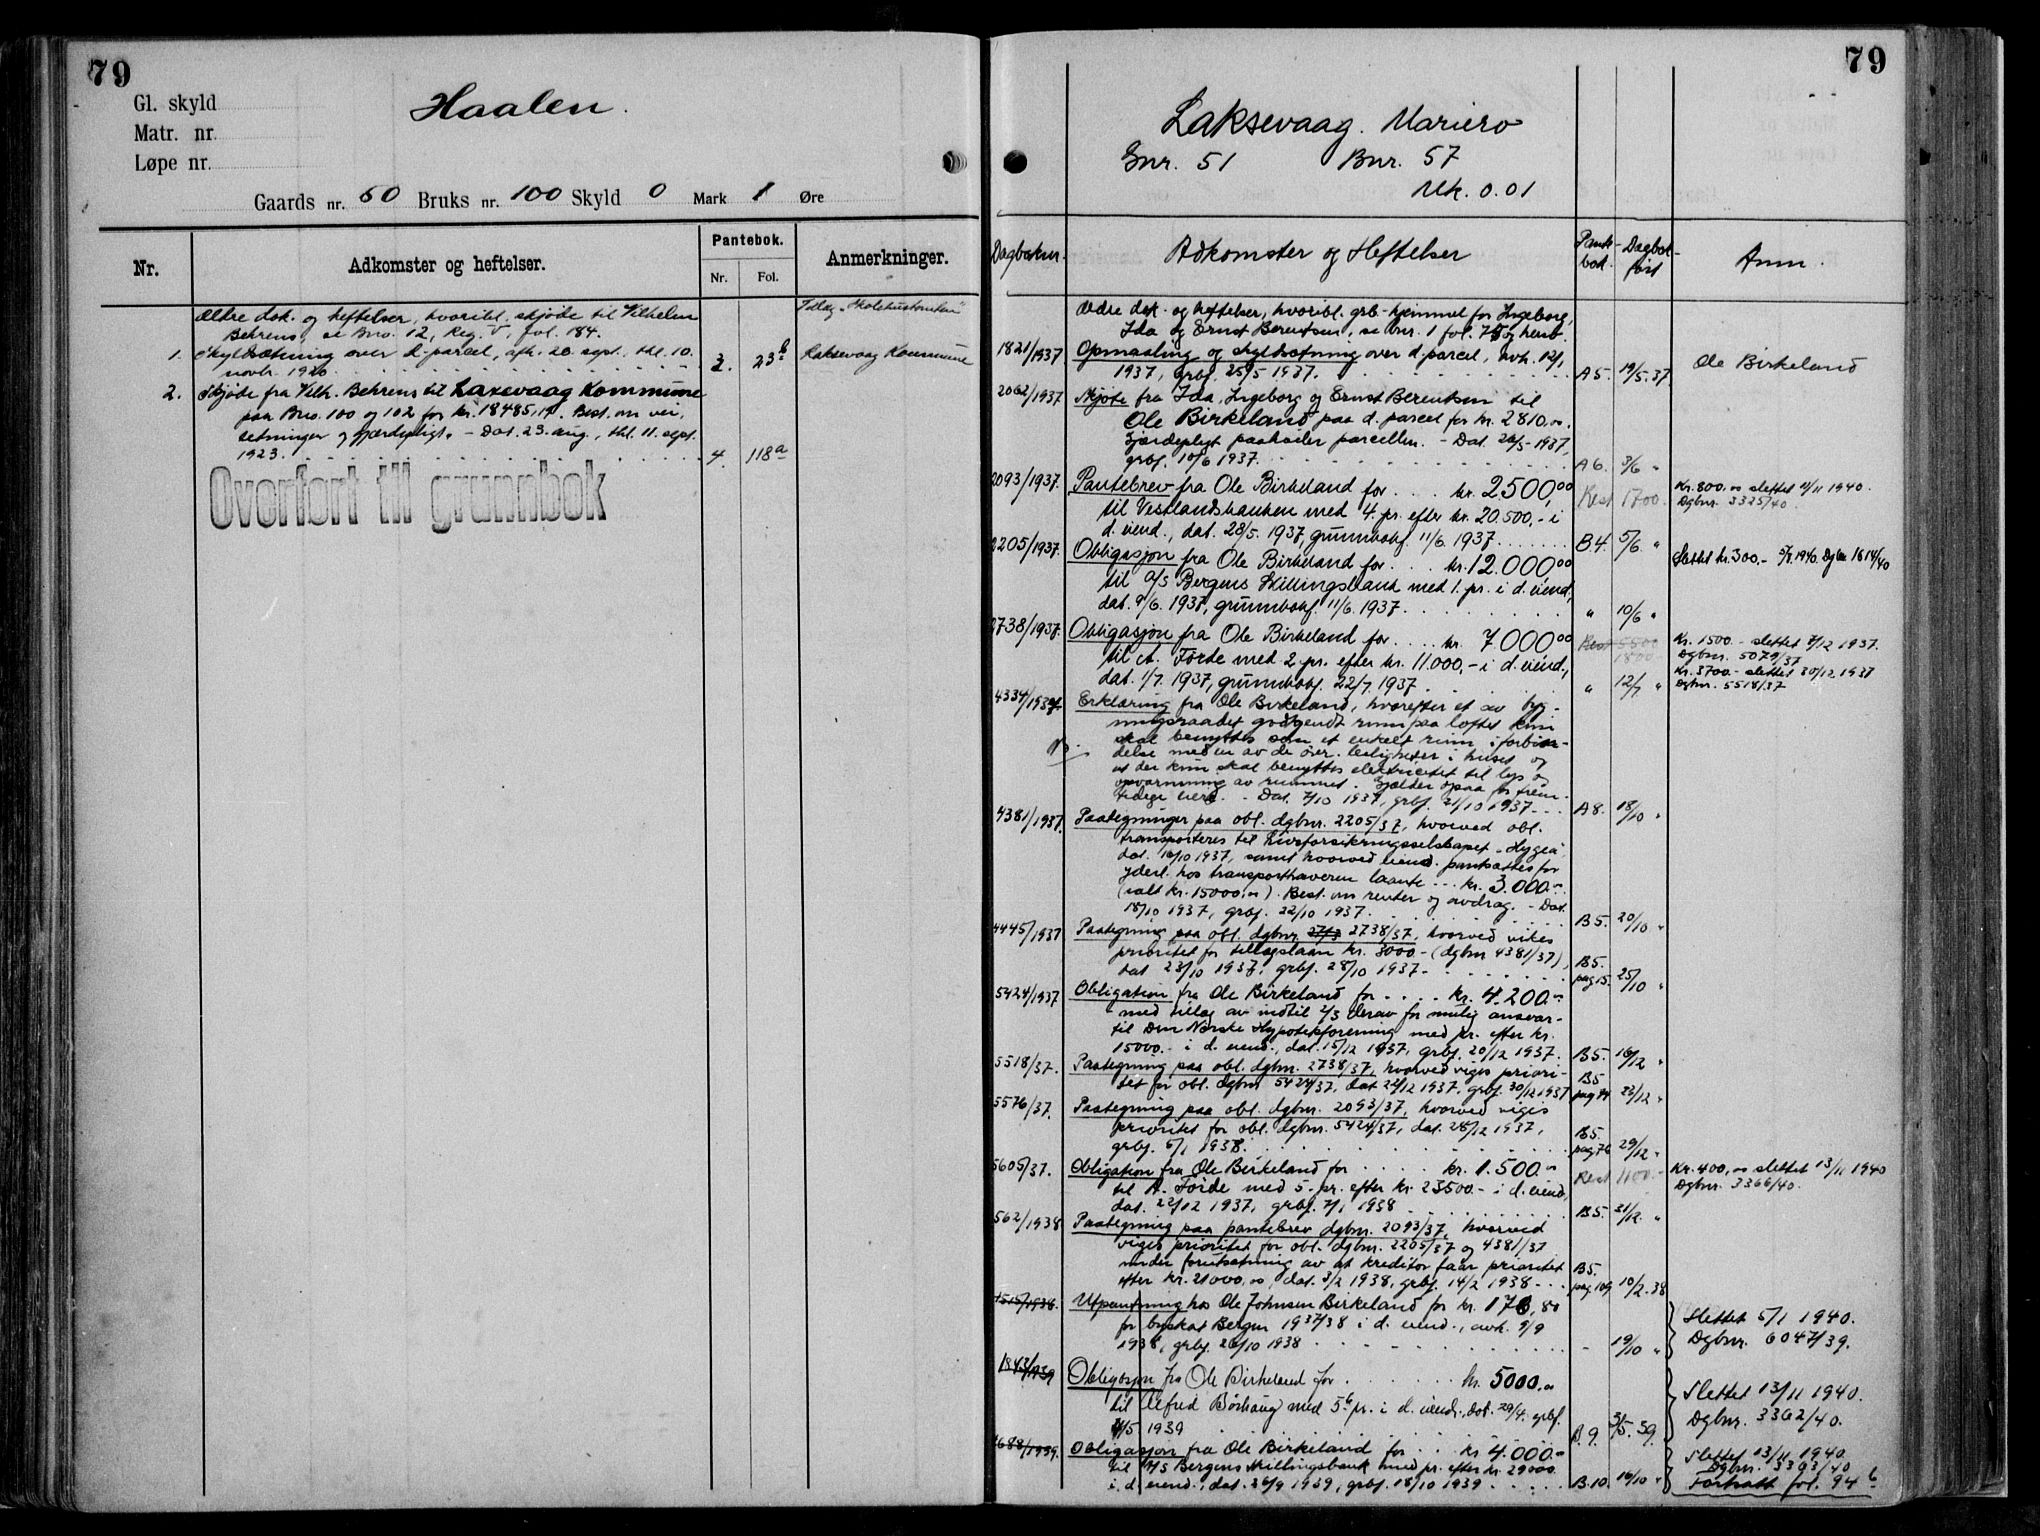 79
Gl. skyld
Haalen.
Matr. nr.
Løpe nr.
Gaards nr. 50 Bruks nr. 100 Skyld 0 Mark 1 Øre
Nr.
Adkomster og heftelser.
Pantebok.
Nr.
Fol.
Anmerkninger.
Ældre dok. og heftelser, hvoribl. skjøde til Vilhelm
Behrens, se Bno. 12, Reg. V, fol. 184.
1. Skyldsætning over d. parcel, afh. 20. sept., thl. 10.
novbr. 1920. 3. 23b Laksevaag Kommune
2. Skjøde fra Vilh. Behrens til Laxevaag Kommune
paa Bno. 100 og 102 for kr. 18485,14. Best. om vei,
setninger og gjærdepligt. - Dat. 23. aug., thl. 11. sept.
1923. 4. 118a
Overført til grunnbok
79
Laksevaag. Mariero
Gnr. 51 Bnr. 57
Mk. 0.01
Dagboknr.
Adkomster og Heftelser
Pantebok.
Dagbokført
Anm.
Ældre dok. og heftelser, hvoribl. grb-hjemmel for Ingeborg,
Ida og Ernst Berentsen, se bnr. 1 fol. 75 og henv.
1821/1937 Opmaaling og skyldsætning over d. parcel, avh. 12/1
1937, grbf. 25/5 1937. A5. 19/5.37 Ole Birkeland
2062/1937 Skjøte fra Ida, Ingeborg og Ernst Berentsen til
Ole Birkeland paa d. parcel for kr. 2810,00.
Gjærdepligt paahviler parcellen. - Dat. 28/5-1937,
grbf. 10/6 1937. A6. 3/6 "
2093/1937. Pantebrev fra Ole Birkeland for ... kr. 2500,00 Rest 1700. Kr. 800,00 slettet 11/11 1940.
Dgbnr. 3325/40.
til Vestlandsbanken med 4. pr. efter kr. 20.500,- i
d. eiend., dat. 28/5. 1937, grunnbokf. 11/6. 1937 B4. 5/6. "
2205/1937. Obligasjon fra Ole Birkeland for ... kr. 12.000,00 Slettet kr. 300.- 5/7 1940. Dgbnr 1614/40
til A/S Bergens Skillingsbank med 1. pr. i d. eiend.,
dat. 9/6. 1937, grunnbokf. 11/6. 1937. " 10/6 "
2738/1937. Obligasjon fra Ole Birkeland for .... kr. 7000,00 Rest 5500 Kr. 1500.- slettet 7/12 1937.
1800- Dgbnr. 5079/37
til A. Førde med 2. pr. efter kr. 11.000,- i d. eiend., Kr. 3700.- slettet 30/12 1937
dat. 1/7. 1937, grunnbokf. 22/7. 1937 " 12/7 " Dgbnr. 5518/37
4334/1937 Erklæring fra Ole Birkeland, hvorefter et av byg-
ningsraadet godkjendt rum paa loftet kun
skal benyttes som et enkelt rum i forbin-
delse med en av de øvr. leiligheter i huset og
at der kun skal benyttes elektricitet til lys og
opvarmning av rummet. Gjælder ogsaa for frem-
tidige eiere. - Dat. 7/10 1937, grbf. 21/10 1937 A8. 18/10 "
4381/1937. Paategninger paa obl. dgbnr. 2205/37, hvorved obl.
transporteres til livsforsikringsselskapet "Hygea",
dat. 16/10 1937, samt hvorved eiend. pantsættes for
yderl. hos transporthaveren laante ... kr. 3.000.-
(ialt kr. 15000,00). Best. om renter og avdrag. - Dat.
18/10 1937, grbf. 22/10 1937. B5. 20/10 "
4445/1937 Paategning paa obl. dgbnr. 27/3 2738/37, hvorved vikes
prioritet for tillægslaan kr. 3000.- (dgbnr 4381/37),
dat 23/10 1937, grbf. 28/10 1937. B5. pag 15. 25/10 "
5424/1937 Obligation fra Ole Birkeland for .... kr. 4.200.-
med tillæg av indtil 2/3 derav for mulig ansvar-
til Den Norske Hypotekforening med pr. efter kr.
15000.- i d. eiend., dat. 15/12 1937, grbf. 20/12 1937. B5. 16/12 "
5518/37. Paategning paa obl. dgbnr. 2738/37, hvorved viges priori-
tet for obl. dgbnr 5424/37, dat 22/12 1937. grbf. 30/12 1937 B5 22/12 "
5576/37. Paategning paa obl. dgbnr. 2093/37, hvorved viges
prioritet for obl. dgbnr. 5424/37, dat. 28/12 1937,
grbf. 5/1 1938. B5. pag 76 29/12 "
5605/37. Obligation fra Ole Birkeland for .... kr. 1.500.- Rest 1100.- Kr. 400,00 slettet 13/11 1940
Dgbnr. 3366/40.
til A. Førde med 5. pr. efter kr. 23500.- i d. eiend.,
dat. 22/12 1937, grbf. 7/1 1938 B5. 31/12. "
562/1938 Paategning paa pantebrev dgbnr. 2093/37, hvorved
viges prioritet for obl. dgbnr. 2205/37 og 4381/37
under forutsætning av at kreditor faar prioritet
efter kr. 21000,00, dat. 3/2 1938, grbf. 14/2 1938 B5. pag. 109 10/2.38
1515/1938. Utpantning hos Ole Johnsen Birkeland for kr. 176,80
for byskat Bergen 1937/38 i d. eiend., avh. 9/9
1938, grbf. 26/10 1938 - 19/10 " Slettet 5/1 1940.
Dgbnr. 6047/39.
1843/1939 Obligasjon fra Ole Birkeland for ... kr. 5000.00
til Alfred Børhaug med 5b pr. i d. eiend., dat. 29/4. grbf.
11/5 1939 B.9. 3/5.39. Slettet 13/11 1940.
Dgbnr. 3362/40.
4688/1939. Obligasjon fra Ole Birkeland for ... kr 4.000.-
til A/S Bergens Skillingsbank med pr. efter kr. 29000.
i d. eiend., dat. 26/9 1939, grbf. 18/10 1939 B.10. 16/10 " Slettet 13/11 1940
Dgbnr. 3363/40
Fortsatt fol. 94b